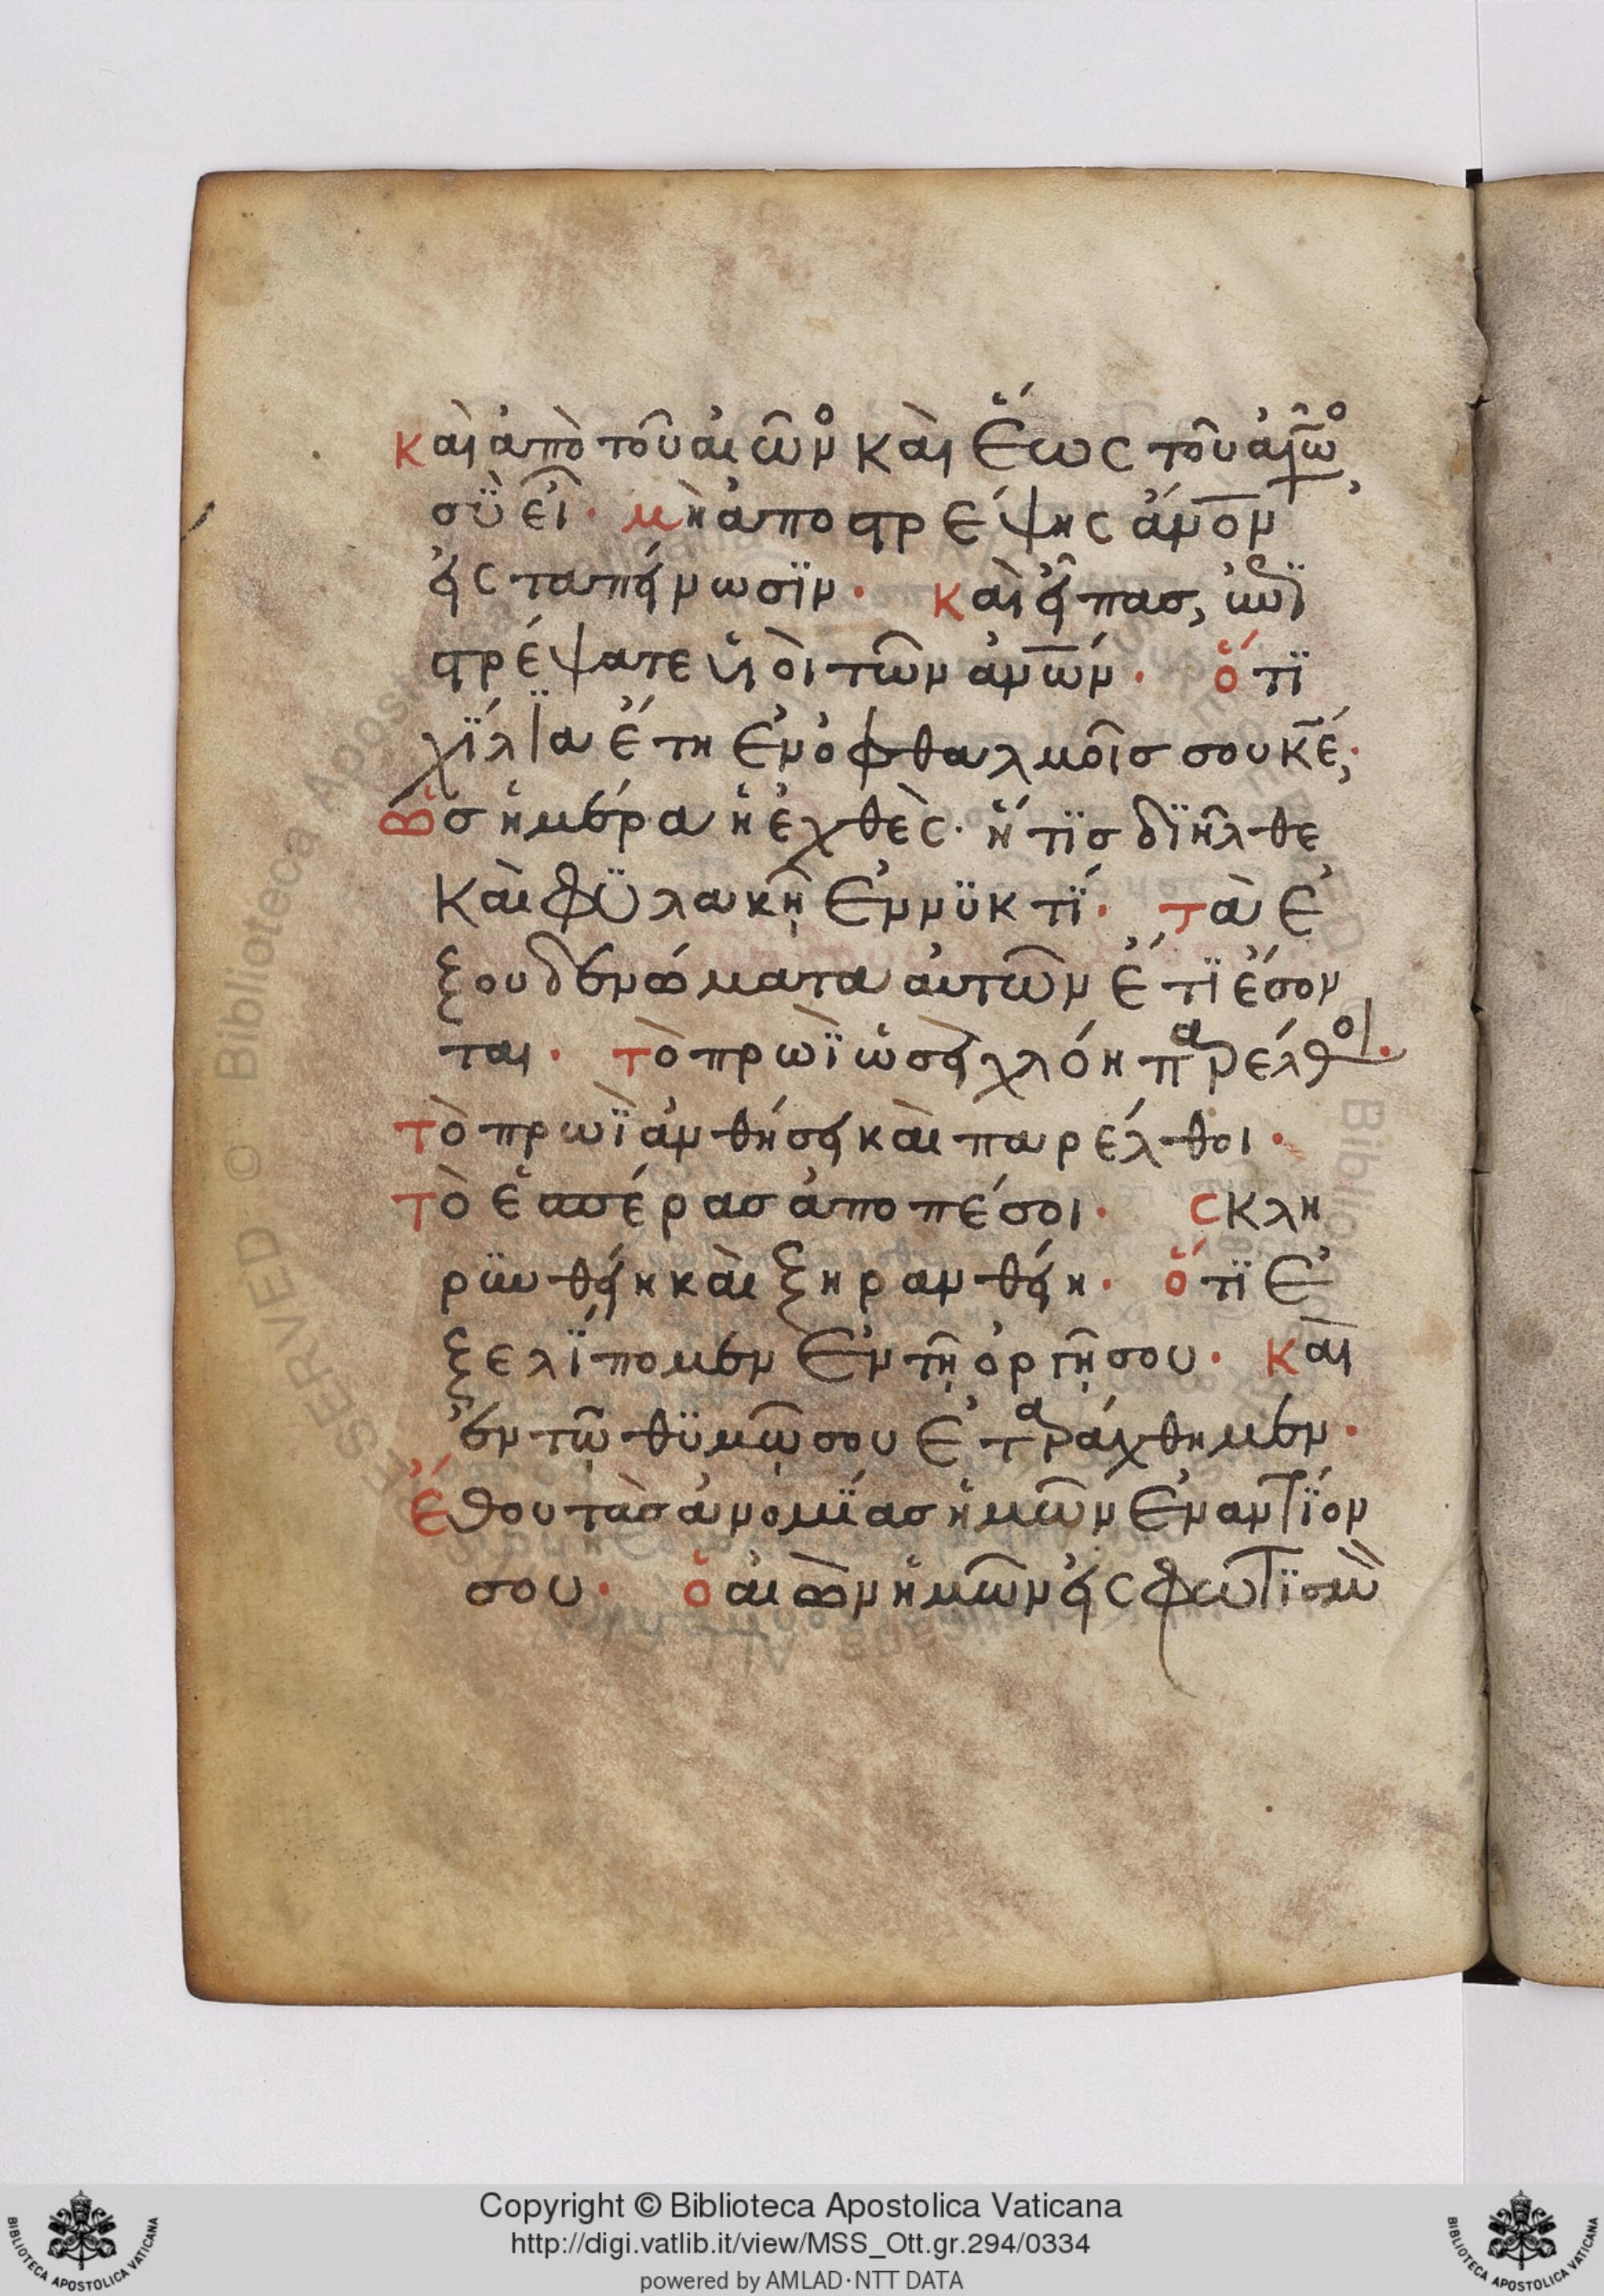 καὶ ἀπὸ τοῦ αἰῶνο καὶ ἕως τοῦ αἰῶνο
σὺ εἶ· μὴ ἀποστρέψης ἀνον
εἰς ταπείνωσϊν· καὶ εἶπας, ἐπϊ
στρέψατε υἱοὶ τῶν ἀνων· ὅτϊ
χϊλϊα ἔτη ἐν ὀφθαλμοῖσ σου κε·
ὡσ ἡμέρα ἡ ἐχθὲς· ἥτϊσ δϊῆλθε
καὶ φϋλακὴ ἐν νϋκτϊ· τὰ ἐ
ξουδενώματα αὐτῶν ἔτϊ ἔσον
ται· τὸ πρωῒ ὡσεὶ χλόη παρέλθοι·
τὸ πρωῒ ἀνθήσει καὶ παρέλθοι·
τὸ ἑσπέρασ ἀποπέσοι· σκλη
ρϋνθείη καὶ ξηρανθείη· ὅτϊ ἐ
ξελίπομεν ἐν τῇ ὀργῇ σου· καὶ
ἐν τῷ θϋμῷ σου ἐταράχθημεν·
ἔθου τὰσ ἀνομϊασ ἡμῶν ἐναντϊον
σου· ὁ αἰὼν ἡμῶν εἰς φωτϊσμὸ
Copyright © Biblioteca Apostolica Vaticana
http://digi.vatlib.it/view/MSS_Ott.gr.294/0334
powered by AMLAD·NTT DATA
BIBLIOTECA APOSTOLICA VATICANA
BIBLIOTECA APOSTOLICA VATICANA